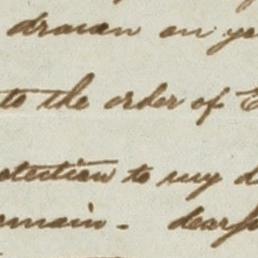 drawn on yo
to the order of E
otection to my d
emain - dear S